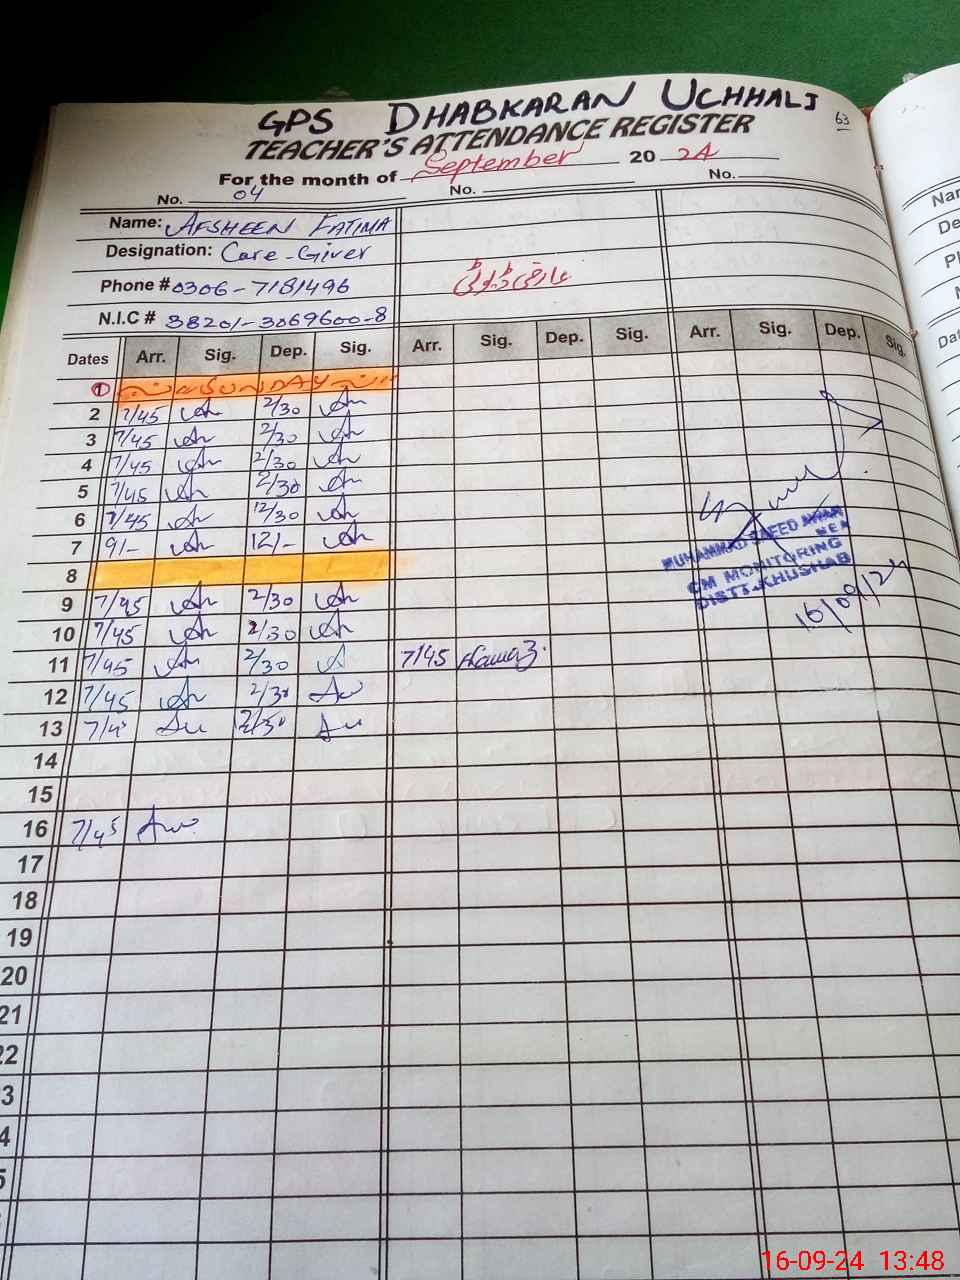 63
GPS DHABKARAN UCHHALI
TEACHER'S ATTENDANCE REGISTER
For the month of September 20 24
No. 04 No. No.
Name: AFSHEEN FATIMA
Designation: Care-Giver
Phone # 0306-7181496
N.I.C # 38201-3069600-8
Dates Arr. Sig. Dep. Sig. Arr. Sig. Dep. Sig. Arr. Sig. Dep. Sig.
1 SUNDAY
2 7/45 2/30
3 7/45 2/30
4 7/45 2/30
5 7/45 2/30
6 7/45 12/30
7 9/- 12/-
8
9 7/45 2/30
10 7/45 2/30
11 7/45 2/30 7/45
12 7/45 2/30
13 7/45 2/30
14
15
16 7/45
17
18
19
20
21
22
23
24
25
MUHAMMAD SAEED
MEA
CM MONITORING
DISTT. KHUSHAB
16/09/24
16-09-24 13:48